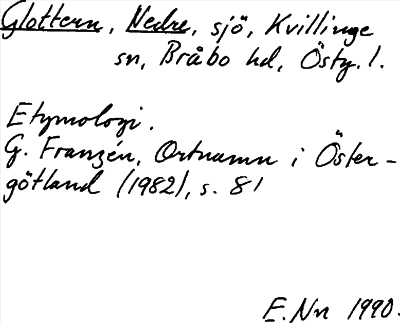 Glottern, Nedre, sjö, Kvillinge
sn, Bråbo hd, Östg. l.
Etymologi.
G. Franzén, Ortnamn i Öster-
götland (1982), s. 81
E. Nn 1990.